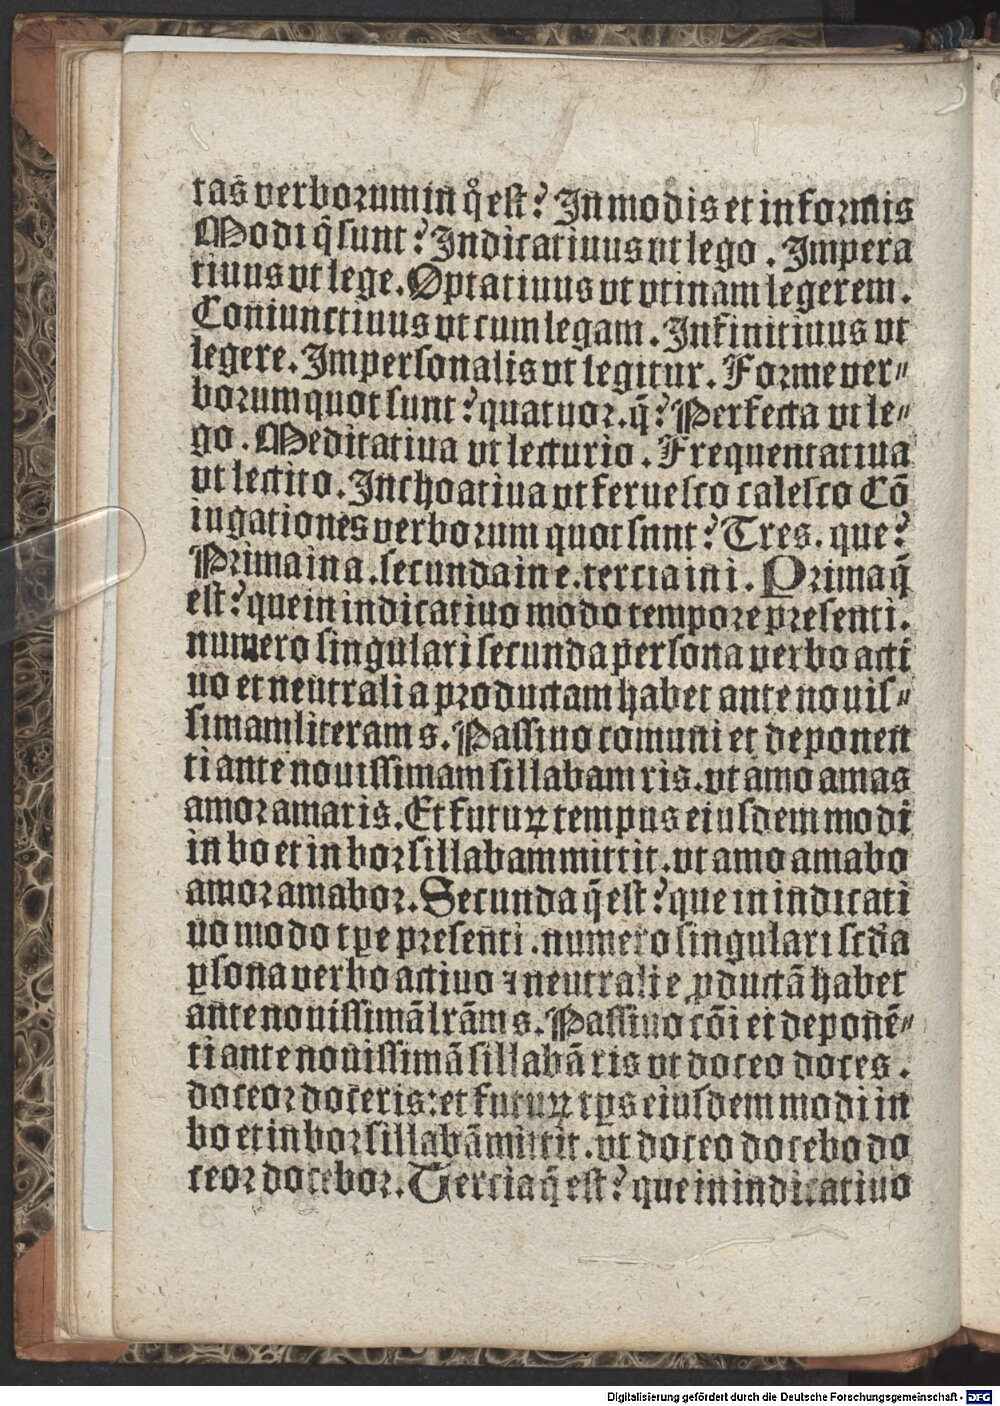 tas verborum in q̊ est? In modis et in formis
Modi q̃ sunt? Indicatiuus vt lego. Impera
tiuus vt lege. Optatiuus vt vtinam legerem.
Coniunctiuus vt cum legam. Infinitiuus vt
legere. Impersonalis vt legitur. Forme ver⸗
borum quot sunt? quatuor. q̃? Perfecta vt le⸗
go. Meditatiua vt lecturio. Frequentatiua
vt lectito. Inchoatiua vt feruesco calesco Cõ
iugationes verborum quot snnt? Tres. que?
Prima in a. secunda in e. tercia in i. Prima q̃
est? que in indicatiuo modo tempore presenti.
numero singulari secunda persona verbo acti
uo et neutrali a productam habet ante nouis⸗
simam literam s. Passiuo comuni et deponen
ti ante nouissimam sillabam ris. vt amo amas
amor amaris. Et futuꝝ tempus eiusdem modi
in bo et in bor sillabam mittit. vt amo amabo
amor amabor. Secunda q̃ est? que in indicati
uo modo tp̄e presenti. numero singulari scd̃a
ꝑsona verbo actiuo ⁊ neutrali e ꝓductã habet
ante nouissimã lrãm s. Passiuo cõi et deponẽ⸗
ti ante nouissimã sillabã ris vt doceo doces.
doceor doceris: et futuꝝ tp̄s eiusdem modi in
bo et in bor sillabã mittit. vt doceo docebo do
ceor docebor. Tercia q̃ est? que in indicatiuo
Digitalisierung gefördert durch die Deutsche Forschungsgemeinschaft - DFG